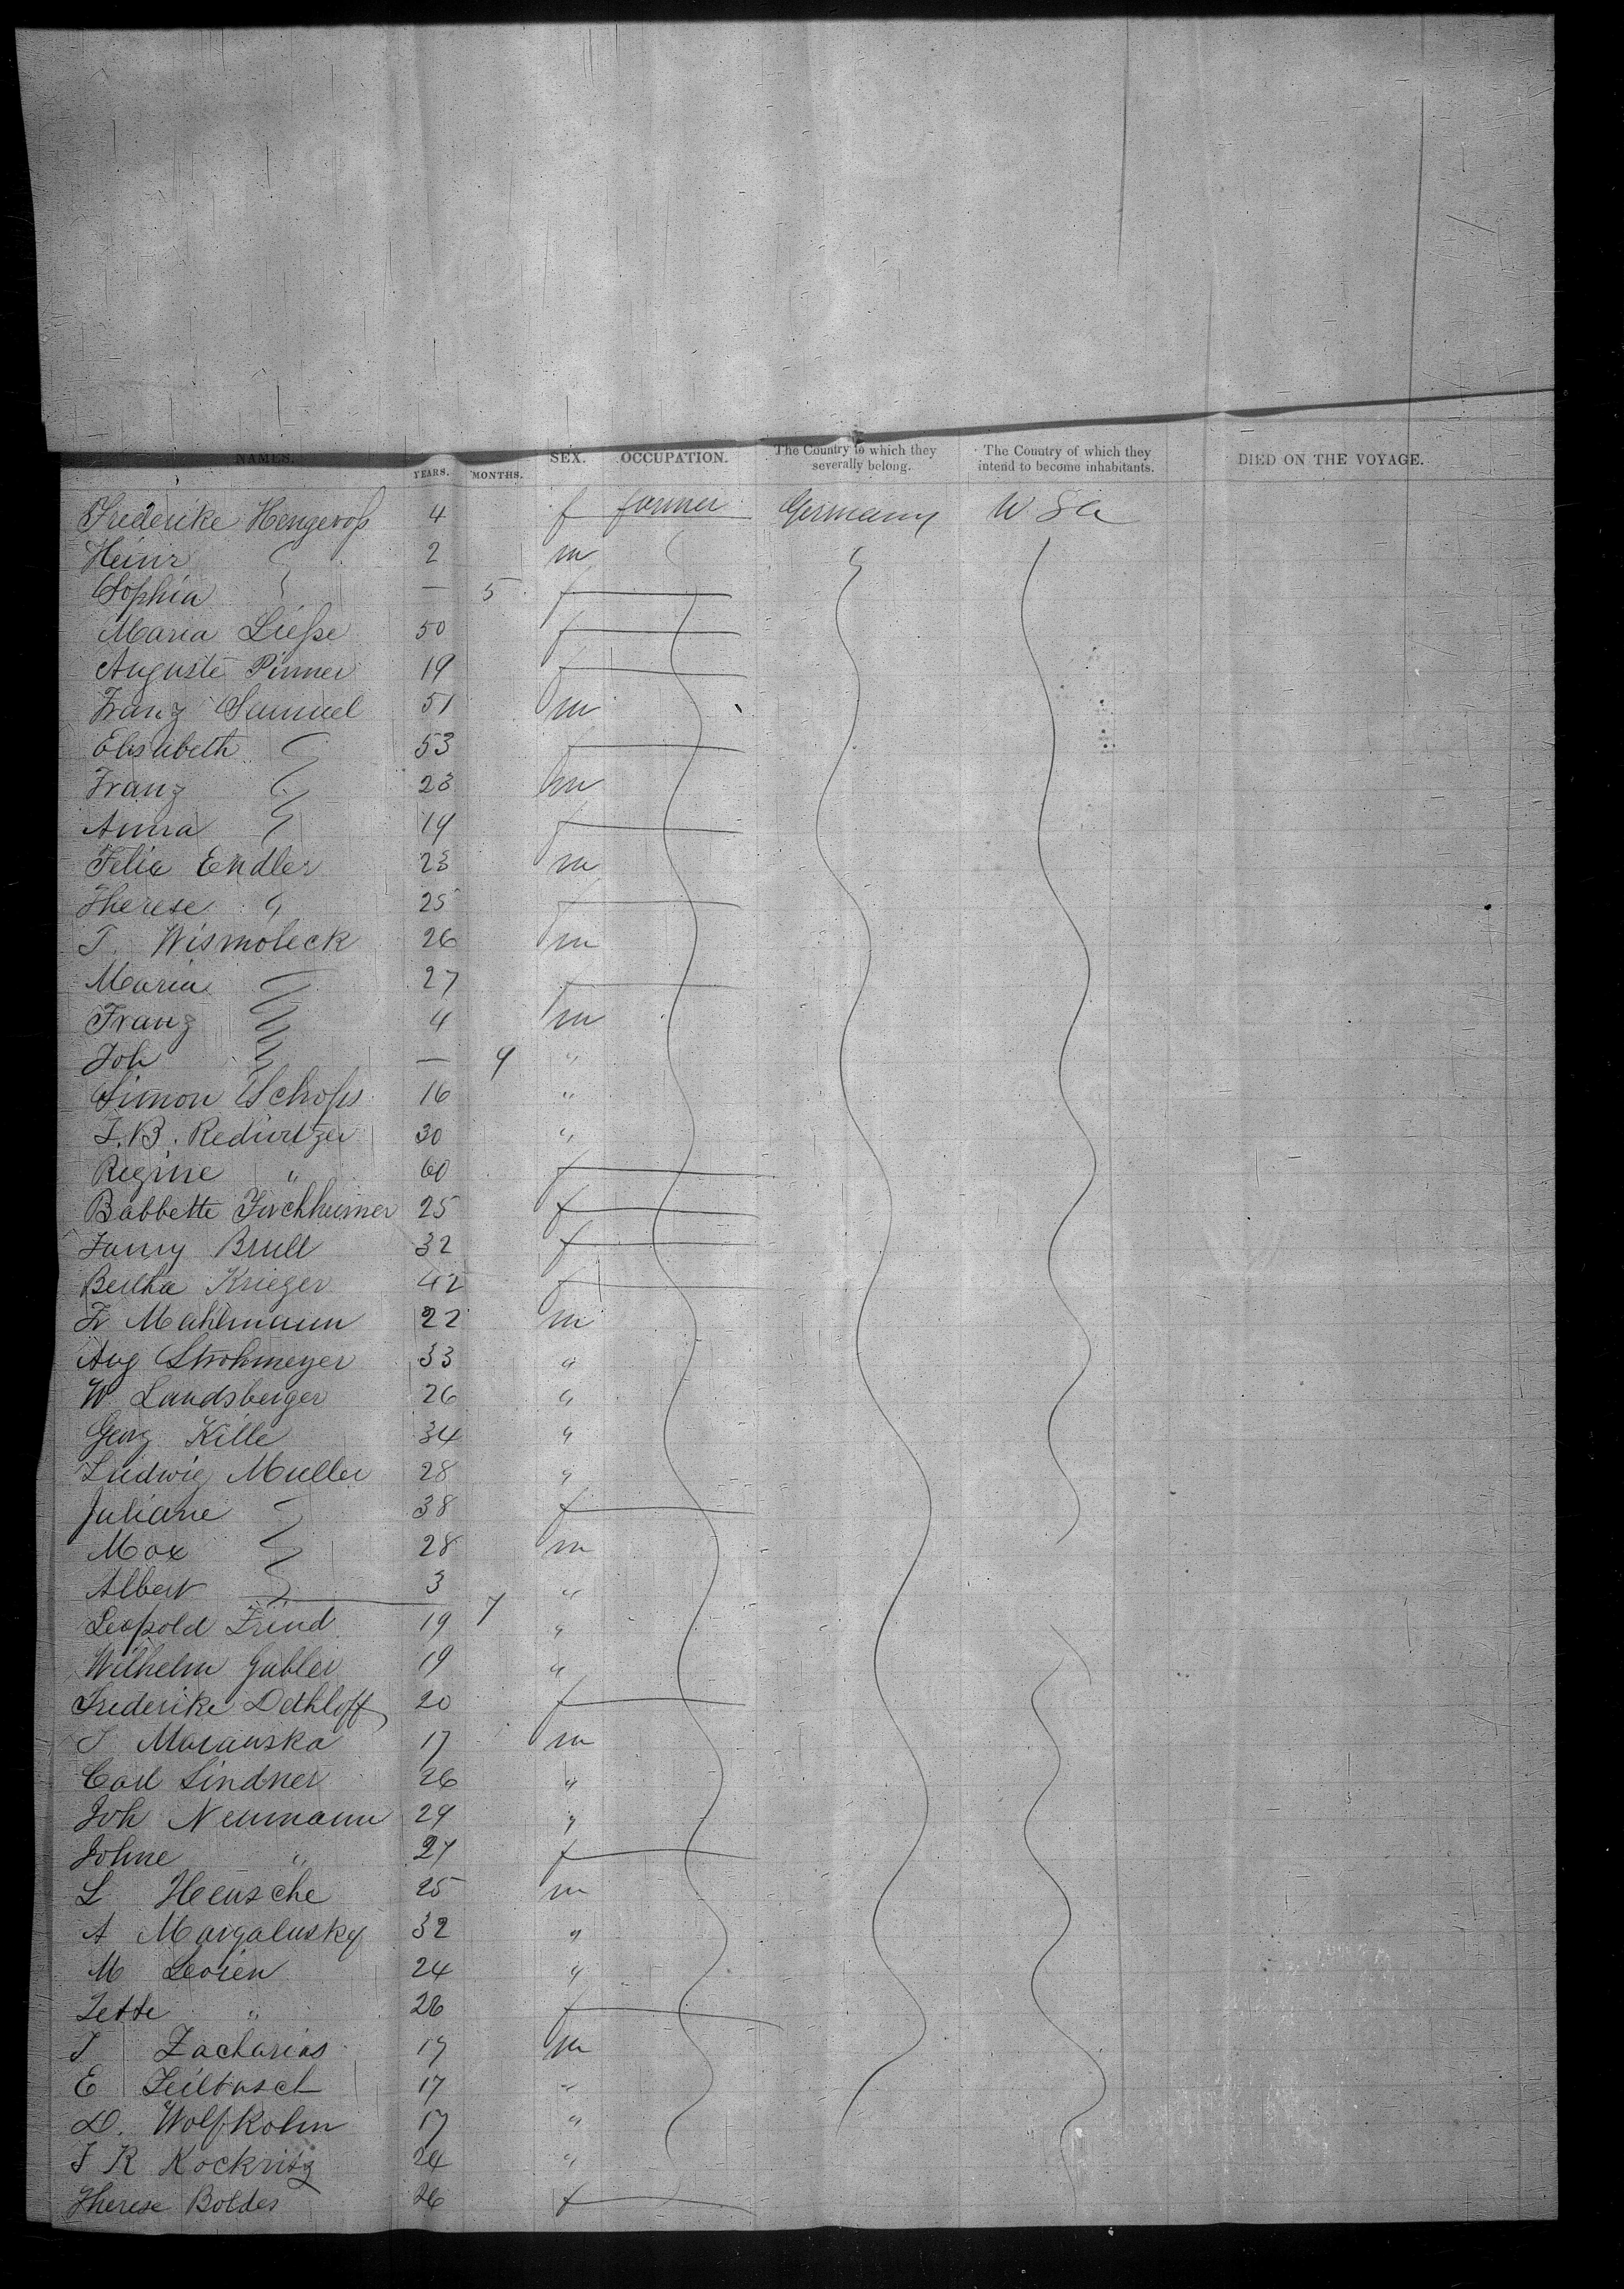 NAMES. YEARS. MONTHS. SEX. OCCUPATION. The Country to which they severally belong. The Country of which they intend to become inhabitants. DIED ON THE VOYAGE.
Frederike Hengeross 4 f farmer Germany U Sa
Heinr 2 m
Sophia — 5 f
Maria Liesse 50 f
Auguste Pinner 19 f
Franz Samuel 51 m
Elisabeth 53 f
Franz 23 m
Anna 19 f
Felix Endler 23 m
Therese " 25 f
J. Wismoleck 26 m
Maria 27 f
Franz 4 m
Joh — 9 "
Simon Schoss 16 "
J.B. Redwitzer 30 "
Regine " 60 f
Babbette Forchheimer 25 f
Fanny Brull 32 f
Bertha Krieger 42 f
Fr Mahlmann 22 m
Aug Strohmeyer 33 "
W Landsberger 26 "
Georg Kille 34 "
Ludwig Muller 28 "
Juliane 38 f
Max 28 m
Albert 3 "
Leopold Frind 19 7 "
Wilhelm Gabler 19 "
Frederike Dethloff 20 f
J 17 m
Carl Lindner 26 "
Joh Neumann 29 "
Johne " 27 f
L Hensche 25 m
A Margalusky 32 "
M Levien 24 "
Jette " 26 f
J Zacharias 17 m
E 17 "
D. Wolfkohn 17 "
J R Kockritz 24 "
Therese Boldes 26 f